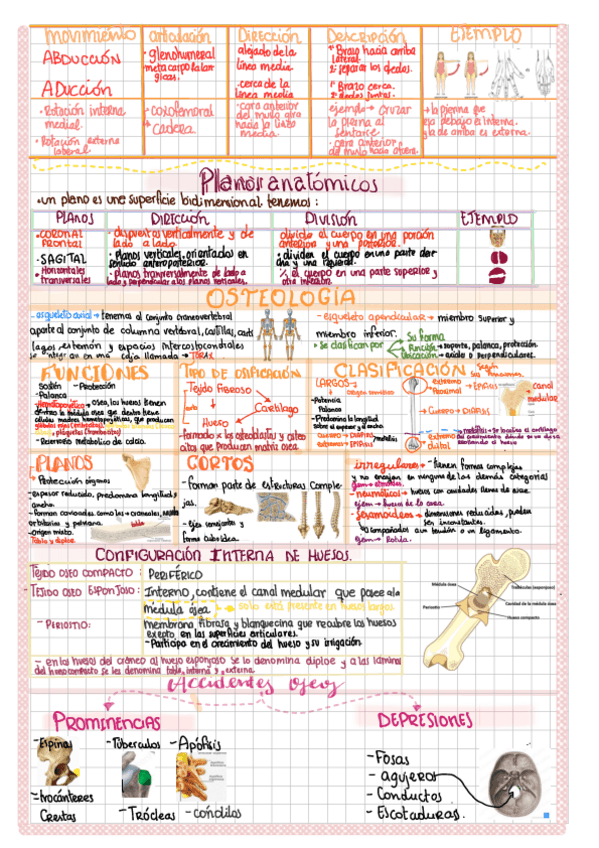 movimiento articulación Dirección Descripción EJEMPLO
ABDUCCIÓN
· glenohumeral
metacarpofalangicas.
alejado de la
línea media
1° Brazo hacia arriba
lateral.
2° separar los dedos.
ADUCCIÓN
· cerca de la
línea media
1° Brazo cerca.
2° dedos juntos.
· Rotación interna
medial.
· Rotación externa
lateral
· coxofemoral
✓ cadera
· cara anterior
del muslo gira
hacia la línea
media.
ejemplo → cruzar
la pierna al
sentarte
· cara anterior
del muslo hacia afuera.
→ la pierna que
está debajo es interna.
y la de arriba es externa.
Planos anatómicos
• un plano es una superficie bidimensional. tenemos :
PLANOS DIRECCIÓN DIVISIÓN EJEMPLO
· CORONAL
FRONTAL
· dispuestos verticalmente y de
lado a lado.
divide al cuerpo en una porción
anterior y una posterior.
· SAGITAL
· Planos verticales, orientados en
sentido anteroposterior.
• dividen el cuerpo en una parte dere
cha y una izquierda.
· Horizontales
tranversales
· planos tranversalmente de lado a
lado y perpendicular a los planos verticales.
el cuerpo en una parte superior y
otra inferior.
OSTEOLOGÍA
- esqueleto axial → tenemos al conjunto craneovertebral
aparte al conjunto de columna vertebral, costillas, carti
lagos, esternón y espacios intercostocondrales
se integran en una caja llamada → TORAX
- esqueleto apendicular → miembro superior y
miembro inferior.
• se clasifican por
Su forma
Función → soporte, palanca, protección
Ubicación → axiale o perpendiculares.
FUNCIONES
Sostén - Protección
- Palanca
- Hematopoyetico → osea, los huesos tienen
dentro la médula ósea que dentro tiene
células madres hematopoyéticas, que producen
globulos rojos (eritrocitos)
y plaquetas (trombocitos)
- Reservorio metabólico de calcio.
TIPO DE OSIFICACIÓN
- Tejido FIBROSO
Cartílago
HUESO
- formado x los osteoblastos y osteo
citos que producen matriz osea
CLASIFICACIÓN
LARGOS →
- Potencia
Palanca
- Predomina la longitud
sobre el espesor y ancho.
CUERPO → DIAFISIS
EXTREMOS → EPIFISIS
metáfisis
extremo
Proximal → EPIFISIS
→ CUERPO → DIAFISIS
extremo
distal
canal
medular
PLANOS
→ Protección órganos
- espesor reducido, predomina longitud y
ancho.
- forman cavidades como las → craneales, nasales
orbitarias y pelviana.
- Origen mixto.
Tabla y diploe
CORTOS
- forman parte de estructuras Comple-
jas.
- ejes semejantes y
forma cuboidea.
irregulares → tienen formas complejas
y no encajan en ninguna de las demás categorías
ejem → etmoides.
- neumáticos → huesos con cavidades llenas de aire.
ejem → huesos de la cara.
- Sesamoideos → dimensiones reducidas, pueden
ser inconstantes.
acompañados a un tendón o un ligamento.
ejem → Rotula.
CONFIGURACIÓN INTERNA DE HUESOS.
TEJIDO OSEO COMPACTO : PERIFÉRICO
- TEJIDO OSEO ESPONJOSO : Interno, contiene el canal medular que posee ala
medula ósea → solo está presente en huesos largos
- PERIOSTIO: membrana fibrosa y blanquecina que recubre los huesos
exepto en las superficies articulares.
- Participa en el crecimiento del hueso y su irrigación
- en los huesos del cráneo al hueso esponjoso se lo denomina diploe y a las laminas
del hueso compacto se les denomina tabla, interna y externa.
Médula ósea
Trabéculas (esponjoso)
Cavidad de la médula ósea
Periostio
Hueso compacto
Accidentes óseos
PROMINENCIAS DEPRESIONES
- Espinas - Tubérculos - Apófisis
- trocánteres
Crestas - Trócleas - cóndilos
- Fosas
- agujeros
- Conductos
- Escotaduras.